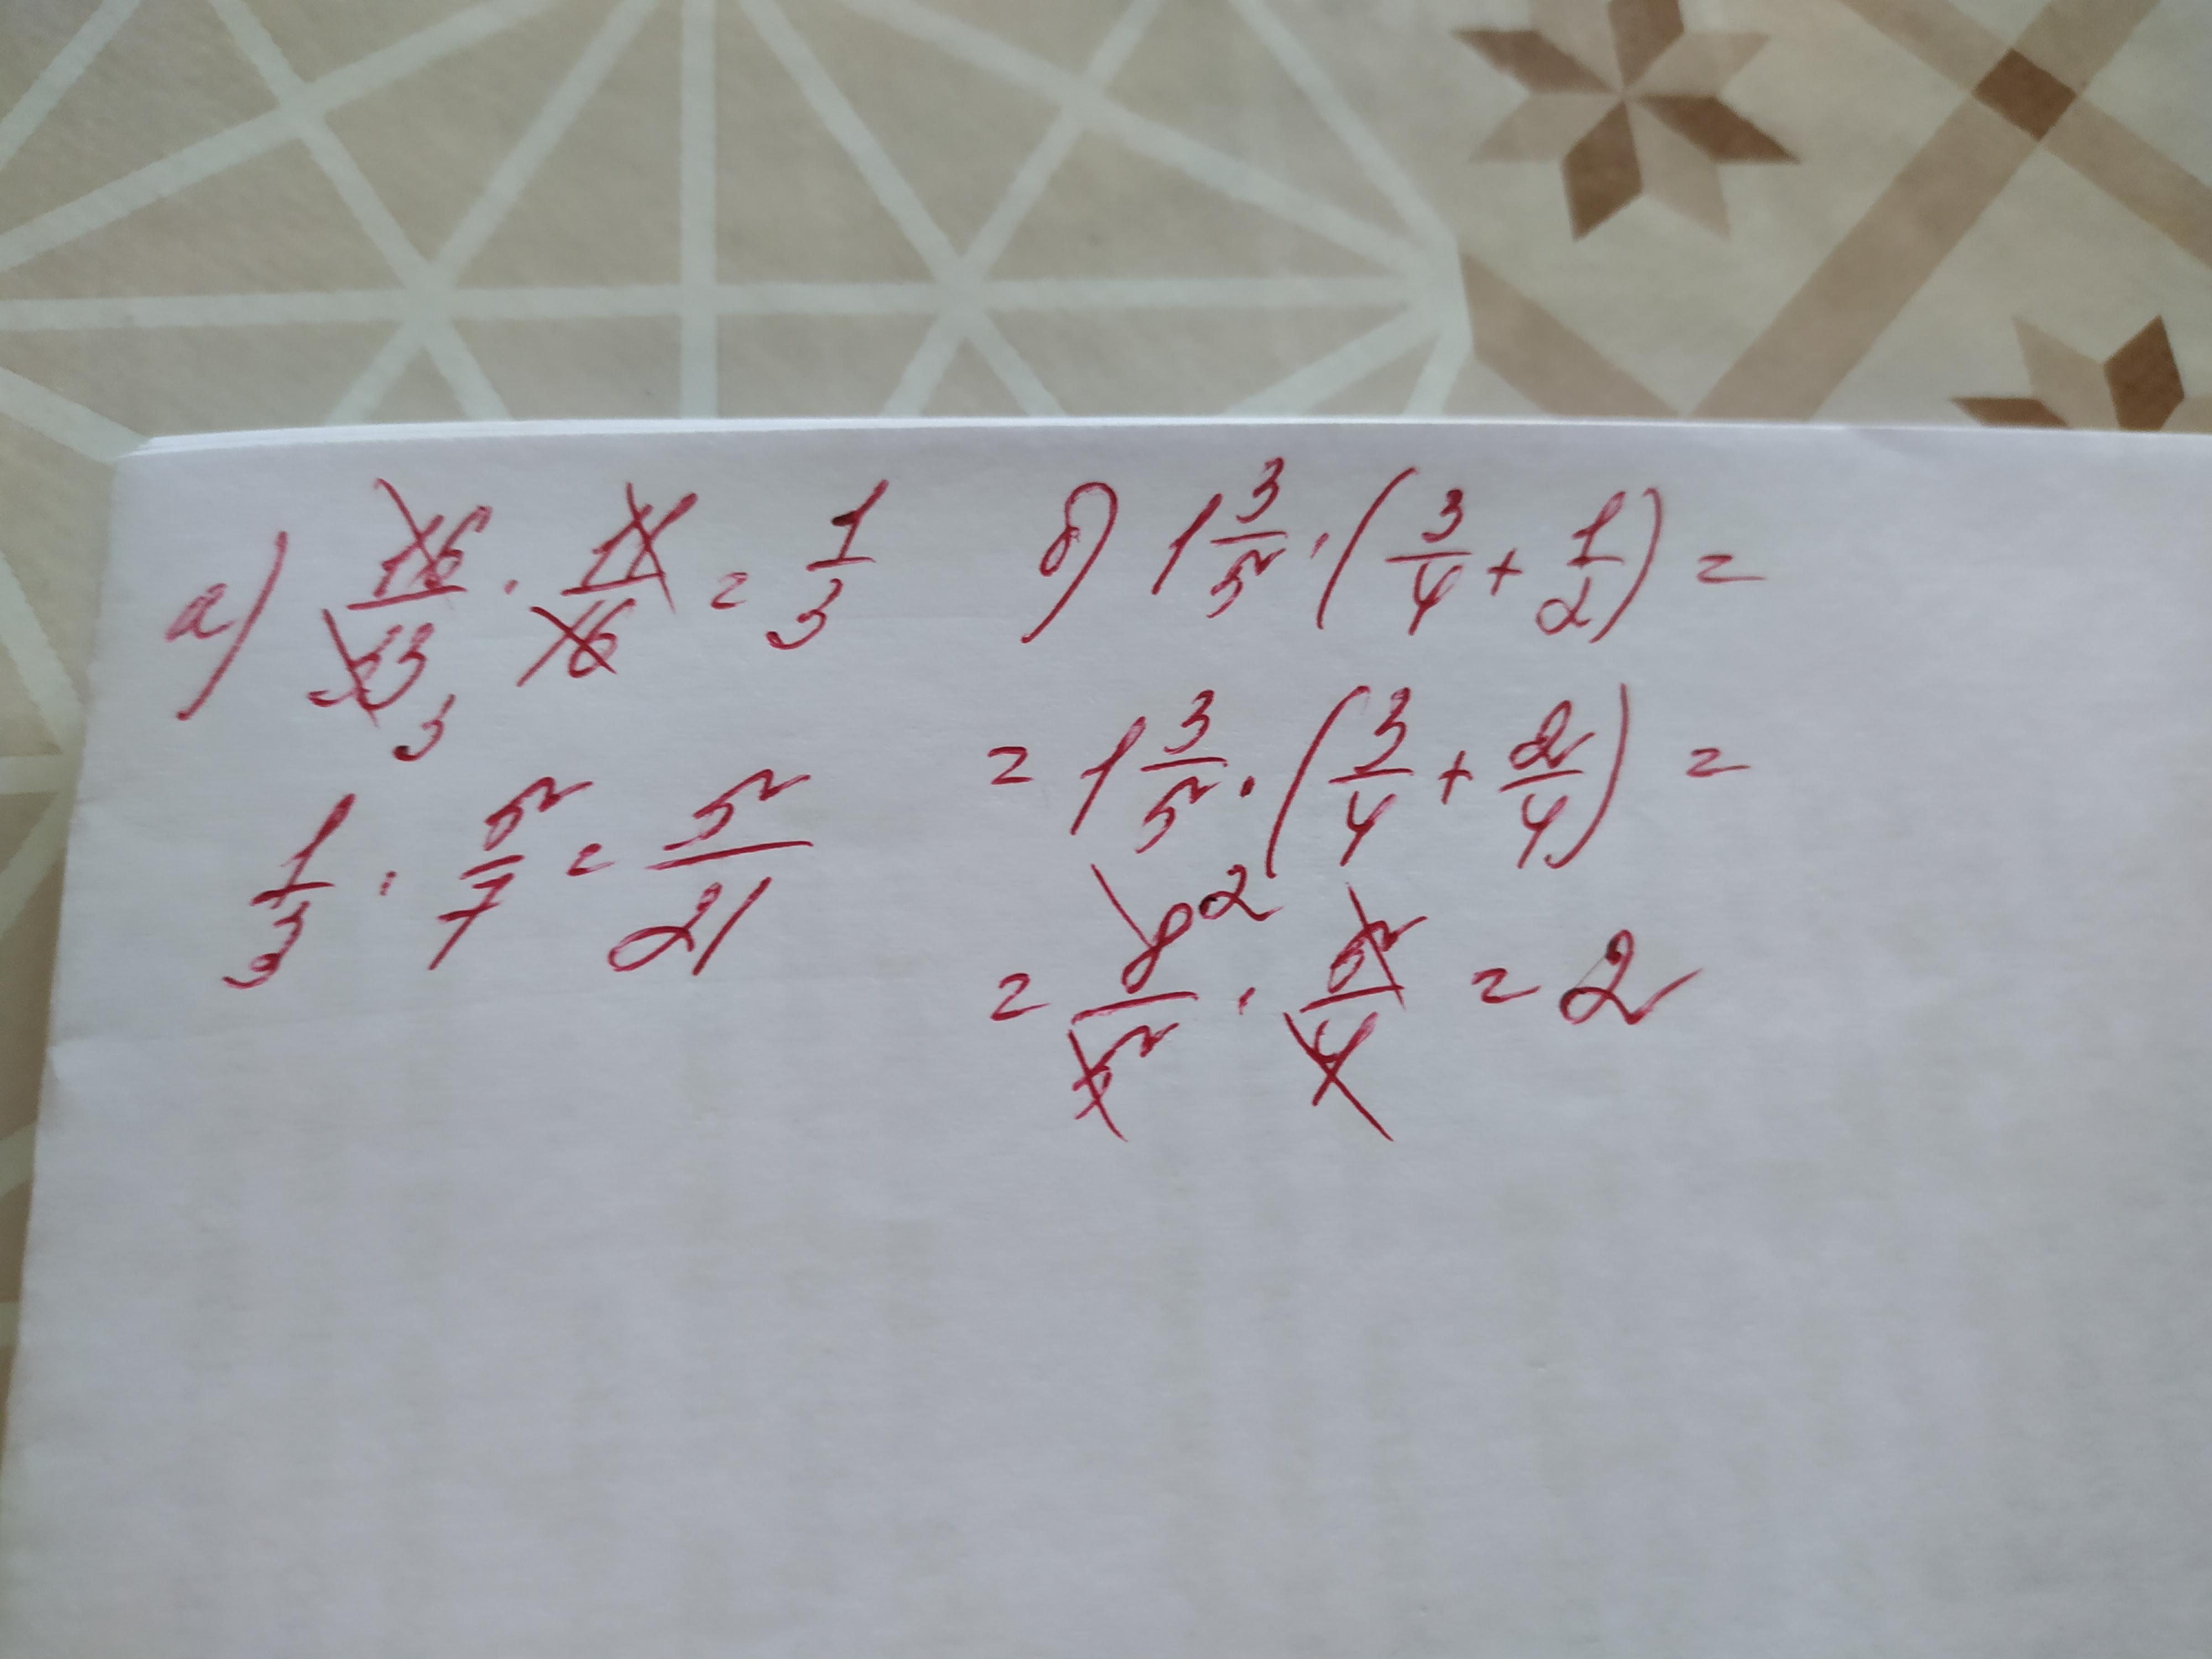 а) 16/33 · 11/16 = 1/3
3
1/3 · 5/7 = 5/21
б) 1 3/5 · (3/4 + 1/2) =
= 1 3/5 · (3/4 + 2/4) =
= 8/5 · 5/4 = 2
2